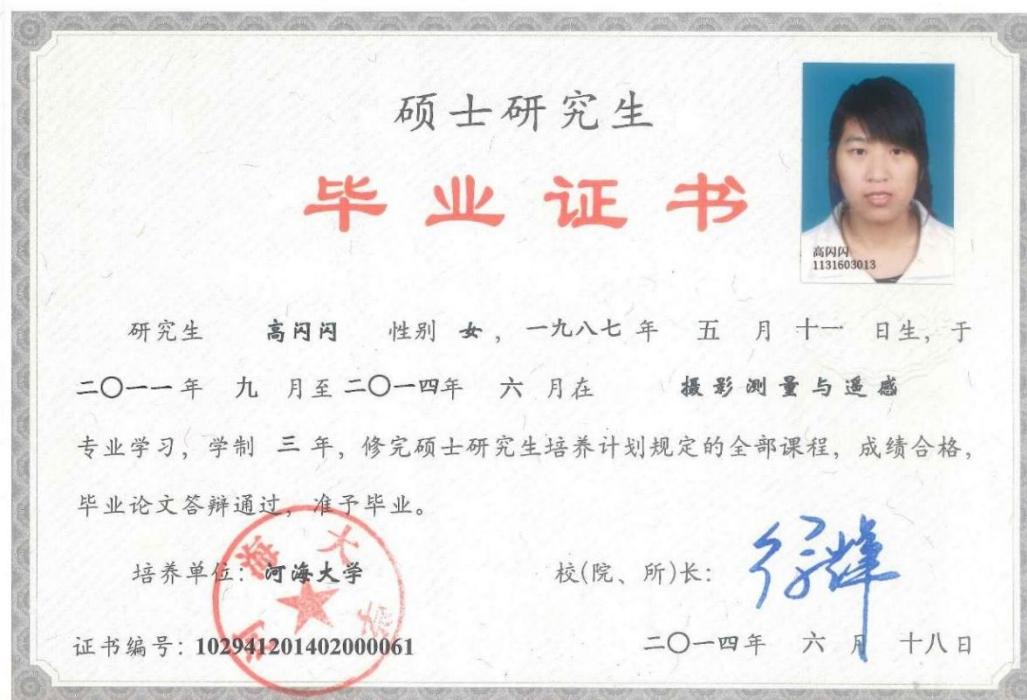 硕士研究生
毕业证书
高闪闪
1131603013
研究生 高闪闪 性别 女，一九八七 年 五 月 十一 日生，于
二〇一一 年 九 月至 二〇一四年 六 月在 摄影测量与遥感
专业学习，学制 三 年，修完硕士研究生培养计划规定的全部课程，成绩合格，
毕业论文答辩通过，准予毕业。
培养单位：河海大学
校(院、所)长：
河海大学
证书编号：102941201402000061
二〇一四年 六 月 十八日